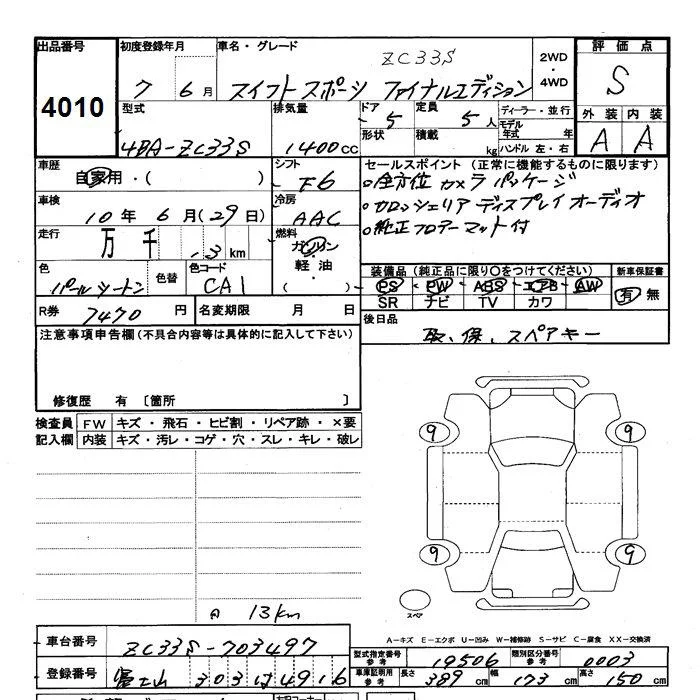 出品番号 初度登録年月 車名・グレード ZC33S 2WD・4WD 評価点
4010 7 6月 スイフトスポーツ ファイナルエディション S
型式 排気量 ドア 5 定員 5人 ディーラー・並行 外装 内装
4BA-ZC33S 1400cc 形状 積載 kg モデル年式 年 ハンドル 左・右 A A
車歴 シフト セールスポイント(正常に機能するものに限ります)
自家用・( ) F6 ○全方位カメラパッケージ
車検 冷房 ○カロッツェリア ディスプレイオーディオ
10年6月(29日) AAC ○純正フロアーマット付
走行 燃料
万 千 13km ガソリン
軽油・( )
色 色替 色コード 装備品(純正品に限り○をつけてください) 新車保証書
CA1 PS PW ABS エアB AW 有 無
SR ナビ TV カワ
R券 7470円 名変期限 月 日 後日品
取、保、スペアキー
注意事項申告欄(不具合内容等は具体的に記入して下さい)
修復歴 有〔箇所 〕
検査員 FW キズ・飛石・ヒビ割・リペア跡・×要
記入欄 内装 キズ・汚レ・コゲ・穴・スレ・キレ・破レ
9 9
9 9
スペア
A 13km
A-キズ E-エクボ U-凹み W-補修跡 S-サビ C-腐食 XX-交換済
車台番号 ZC33S-703497
型式指定番号 参考 19506 類別区分番号 参考 0003
登録番号 富士山 303 す 4916
車庫証明用 参考 長さ 389cm 幅 173cm 高さ 150cm